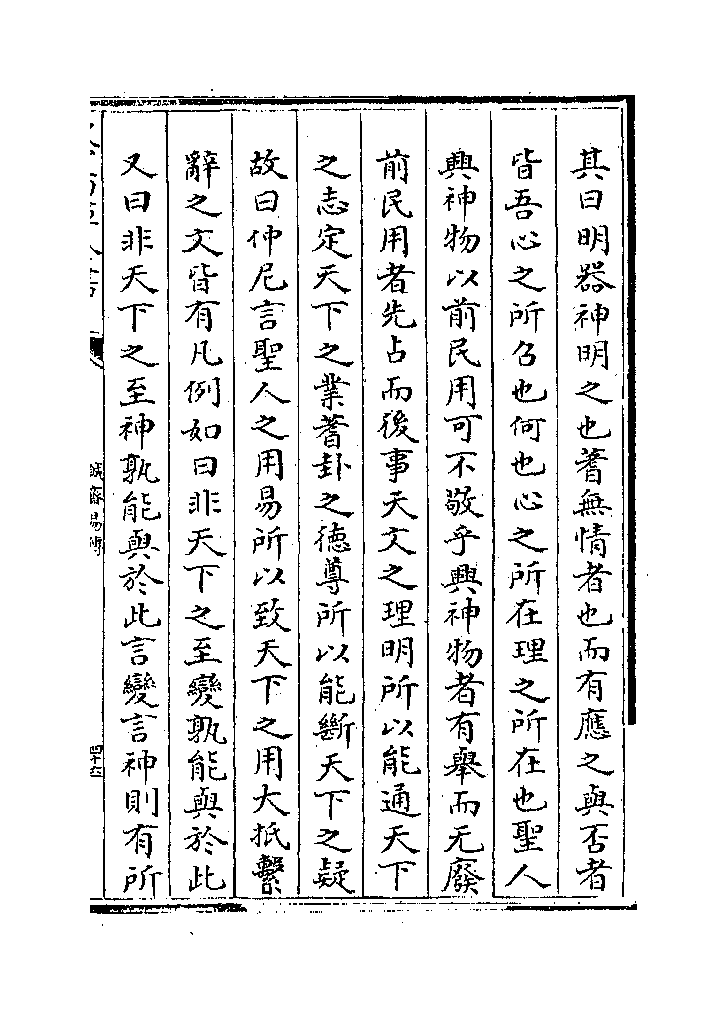 其曰明器神明之也蓍無情者也而有應之與否者
皆吾心之所召也何也心之所在理之所在也聖人
興神物以前民用可不敬乎興神物者有舉而无廢
前民用者先占而後事天文之理明所以能通天下
之志定天下之業蓍卦之德尊所以能斷天下之疑
故曰仲尼言聖人之用易所以致天下之用大抵繫
辭之文皆有凡例如曰非天下之至變孰能與於此
又曰非天下之至神孰能與於此言變言神則有所
誠齋易傳
四十六